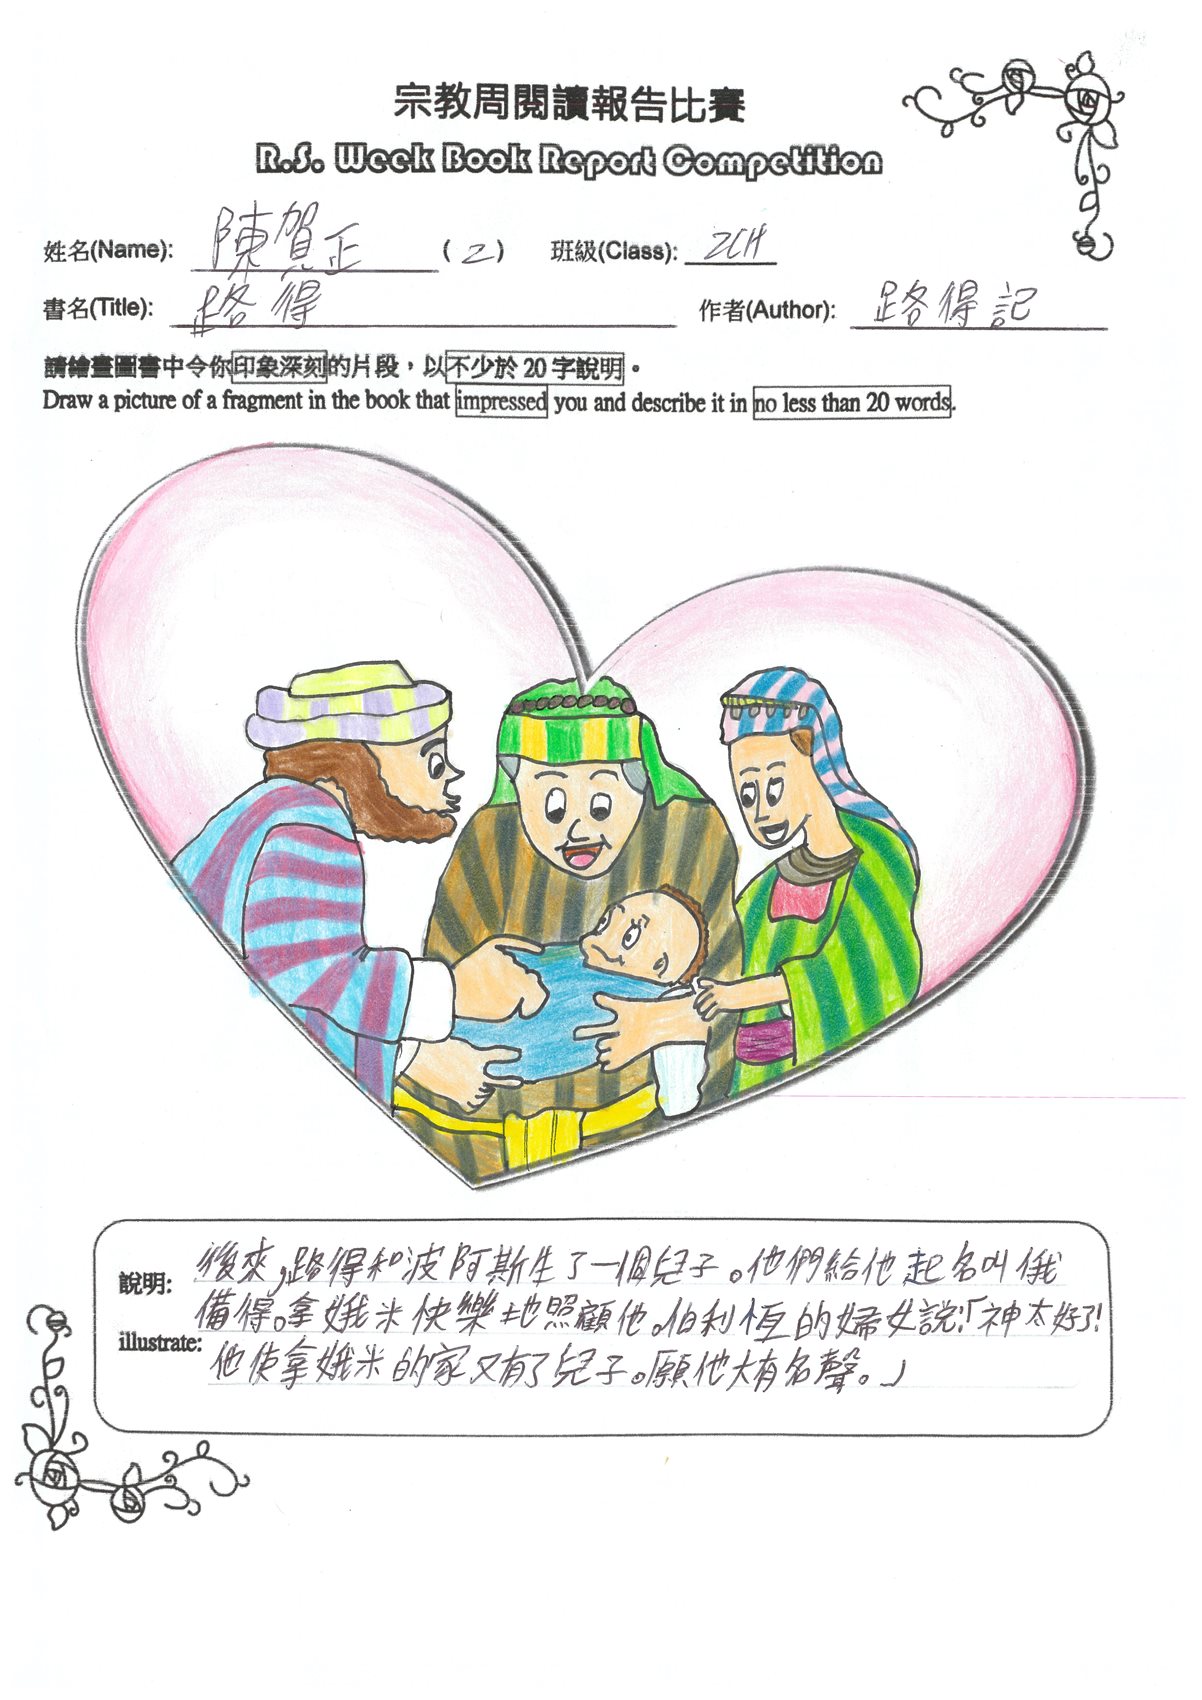 宗教周閱讀報告比賽
R.S. Week Book Report Competition
姓名(Name): 陳賀正 (2) 班級(Class): 2CH
書名(Title): 路得 作者(Author): 路得記
請繪畫圖書中令你印象深刻的片段，以不少於 20 字說明。
Draw a picture of a fragment in the book that impressed you and describe it in no less than 20 words.
說明:
illustrate:
後來,路得和波阿斯生了一個兒子。他們給他起名叫俄
備得。拿娥米快樂地照顧他。伯利恆的婦女說:「神太好了!
他使拿娥米的家又有了兒子。願他大有名聲。」